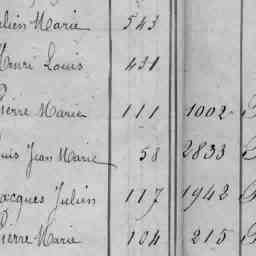 ulien Marie 543
Henri Louis 431
Pierre Marie 111 1002
uis Jean Marie 58 2833
Jacques Julien 117 1942
Pierre Marie 104 215